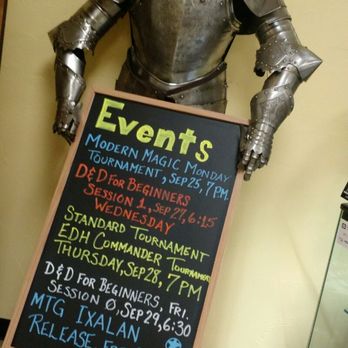 Events
MODERN MAGIC MONDAY
TOURNAMENT, SEP 25, 7 PM
D&D FOR BEGINNERS
SESSION 1, SEP 27, 6:15
WEDNESDAY
STANDARD TOURNAMENT
EDH COMMANDER TOURNAMENT
THURSDAY, SEP 28, 7PM
D&D FOR BEGINNERS, FRI.
SESSION 0, SEP 29, 6:30
MTG IXALAN
RELEASE